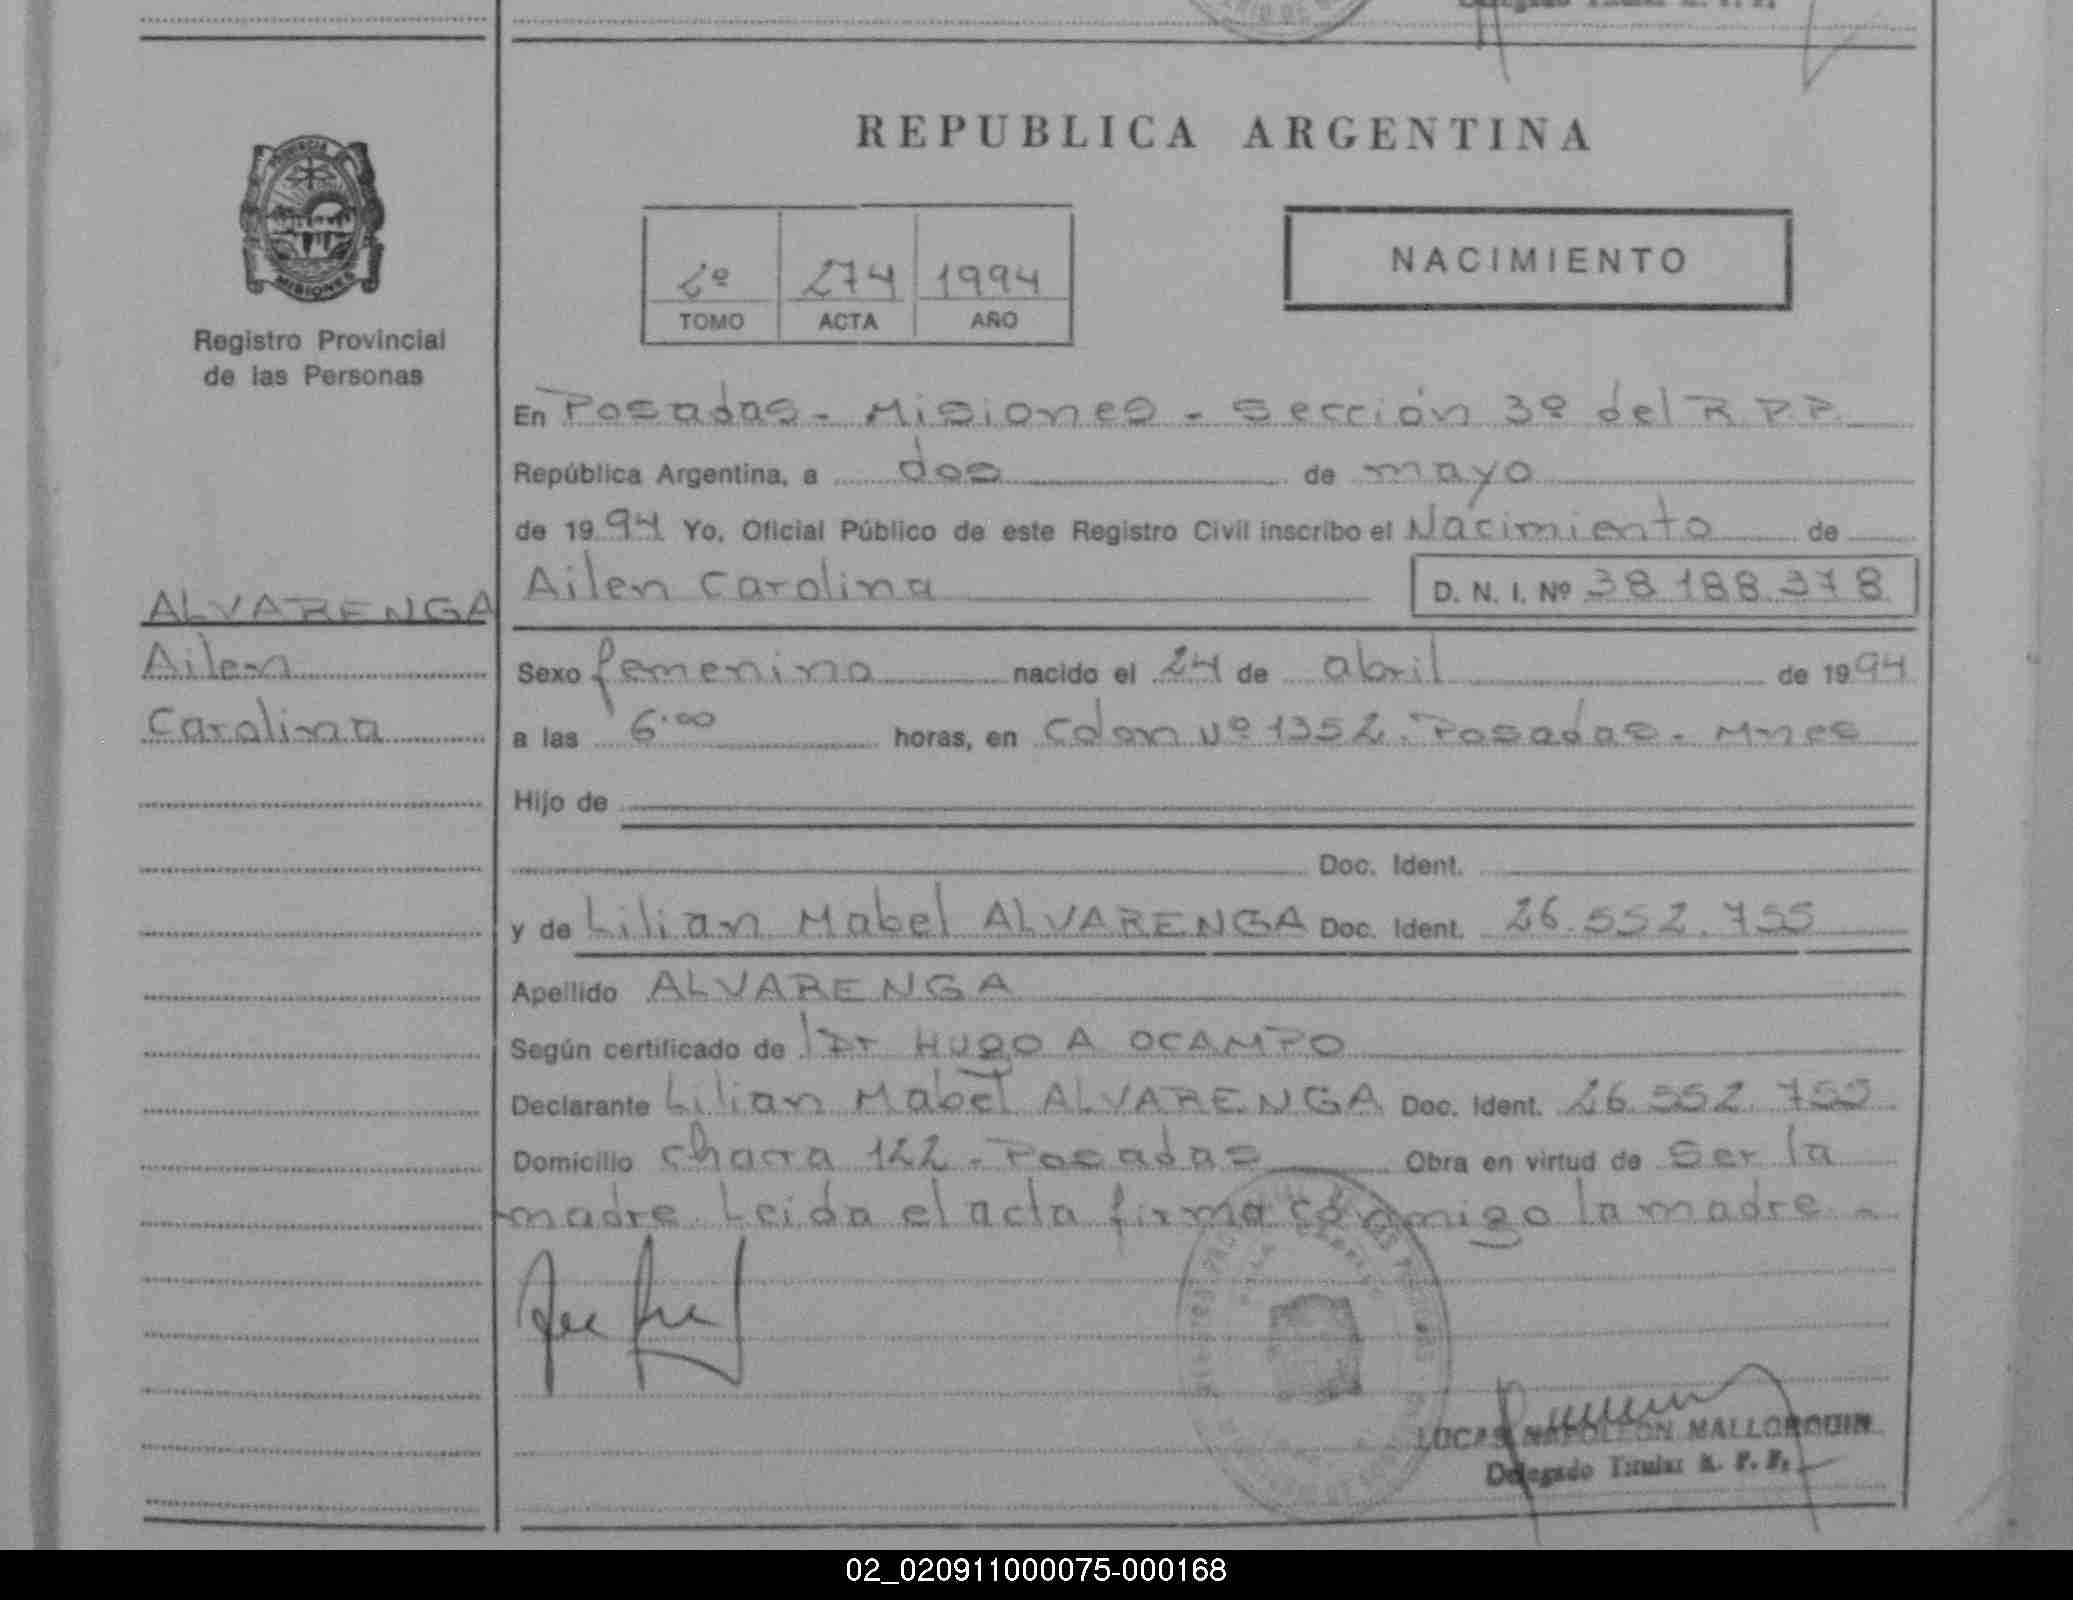 REPUBLICA ARGENTINA
PROVINCIA DE
MISIONES
Registro Provincial
de las Personas
2º 274 1994
TOMO ACTA AÑO
NACIMIENTO
En Posadas - Misiones - Sección 3º del R.P.P.
República Argentina, a dos de mayo
de 1994 Yo, Oficial Público de este Registro Civil inscribo el Nacimiento de
Ailen Carolina D. N. I. Nº 38 188 378
ALVARENGA
Ailen
Carolina
Sexo femenino nacido el 24 de abril de 1994
a las 6.00 horas, en Colon Nº 1352. Posadas - Mnes
Hijo de
Doc. Ident.
y de Lilian Mabel ALVARENGA Doc. Ident. 26.552.755
Apellido ALVARENGA
Según certificado de Dr HUGO A OCAMPO
Declarante Lilian Mabel ALVARENGA Doc. Ident. 26.552.755
Domicilio Chacra 122 - Posadas Obra en virtud de Ser la
madre. Leida el acta firma conmigo la madre. -
LUCAS NAPOLEON MALLORQUIN
Delegado Titular R. P. P.
02_020911000075-000168